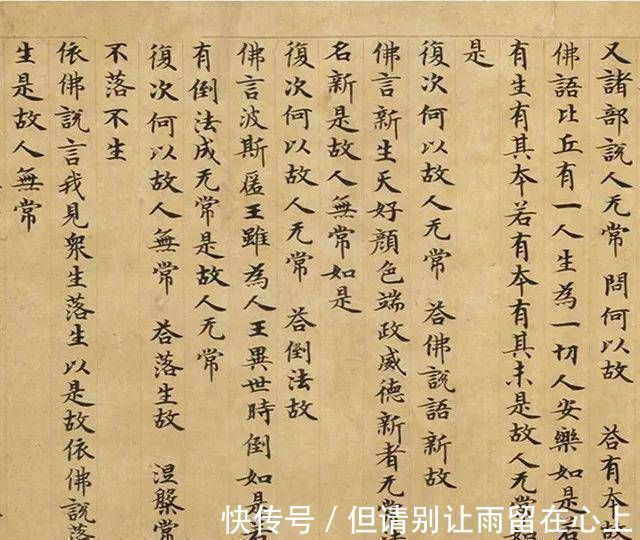 又諸部說人无常 問何以故 荅有本故
佛語比丘有一人生為一切人安樂如是
有生有其本若有本有其末是故人无常如
是
復次何以故人无常 荅佛說語新故
佛言新生天好顏色端政威德新者无常
名新是故人無常如是
復次何以故人无常 荅倒法故
佛言波斯匿王雖為人王異世時倒如是
有倒法成无常是故人无常
復次何以故人無常 荅落生故 涅槃常
不落不生
依佛說言我見衆生落生以是故依佛說落
生是故人無常
快传号 / 但请别让雨留在心上